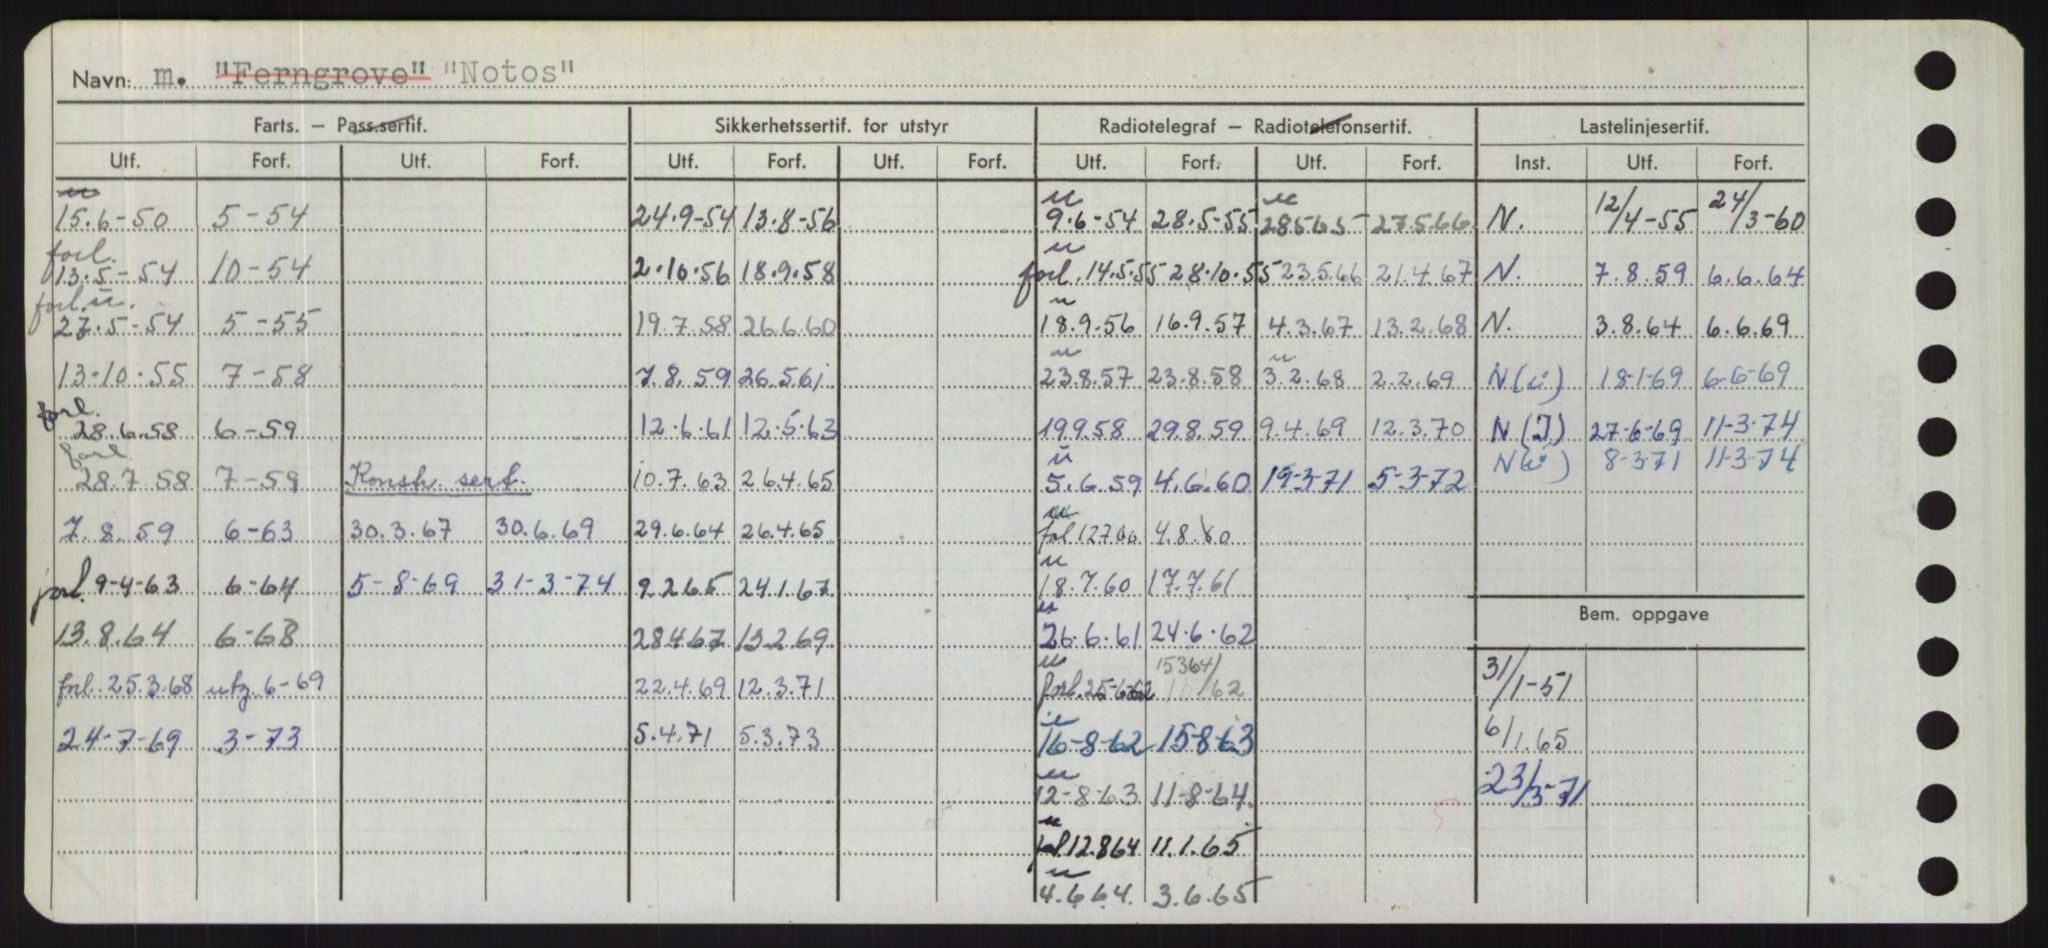 Navn: m. "Ferngrove" "Notos"
Farts. – Pass.sertif. Sikkerhetssertif. for utstyr Radiotelegraf – Radiotelefonsertif. Lastelinjesertif.
Utf. Forf. Utf. Forf. Utf. Forf. Utf. Forf. Utf. Forf. Utf. Forf. Inst. Utf. Forf.
u u u
15.6-50 5-54 24.9-54 13.8-56 9.6-54 28.5-55 28565 27.5.66 N. 12/4-55 24/3-60
forl. u
13.5-54 10-54 2.10.56 18.9.58 forl. 14.5.55 28.10.55 23.5.66 21.4.67 N. 7.8.59 6.6.64
forl. u. u
27.5-54 5-55 19.7.58 26.6.60 18.9.56 16.9.57 4.3.67 13.2.68 N. 3.8.64 6.6.69
u u
13.10.55 7-58 7.8.59 26.5.61 23.8.57 23.8.58 3.2.68 2.2.69 N(i) 18-1-69 6-6-69
forl.
28.6.58 6-59 12.6.61 12.5.63 19.9.58 29.8.59 9.4.69 12.3.70 N(I) 27-6-69 11-3-74
forl. u N(i) 8-3-71 11-3-74
28.7.58 7-59 Konsh. sert. 10.7.63 26.4.65 5.6.59 4.6.60 19-3-71 5-3-72
u
7.8.59 6-63 30.3.67 30.6.69 29.6.64 26.4.65 4.8.60
u
forl. 9-4-63 6-64 5-8-69 31-3-74 9265 24.1.67 18.7.60 17.7.61
Bem. oppgave
u
13.8.64 6-68 28.4.67 13.2.69 26.6.61 24.6.62
u 15364/
forl. 25.3.68 utg. 6-69 22.4.69 12.3.71 forl. 25-6-62 /62 31/1-51
u
24-7-69 3-73 5.4.71 5.3.73 16-8-62 15-8-63 6/1.65
u
12-8-63 11-8-64 23/3-71
u
forl 12.864 11.1.65
u
4.6 64. 3.6.65